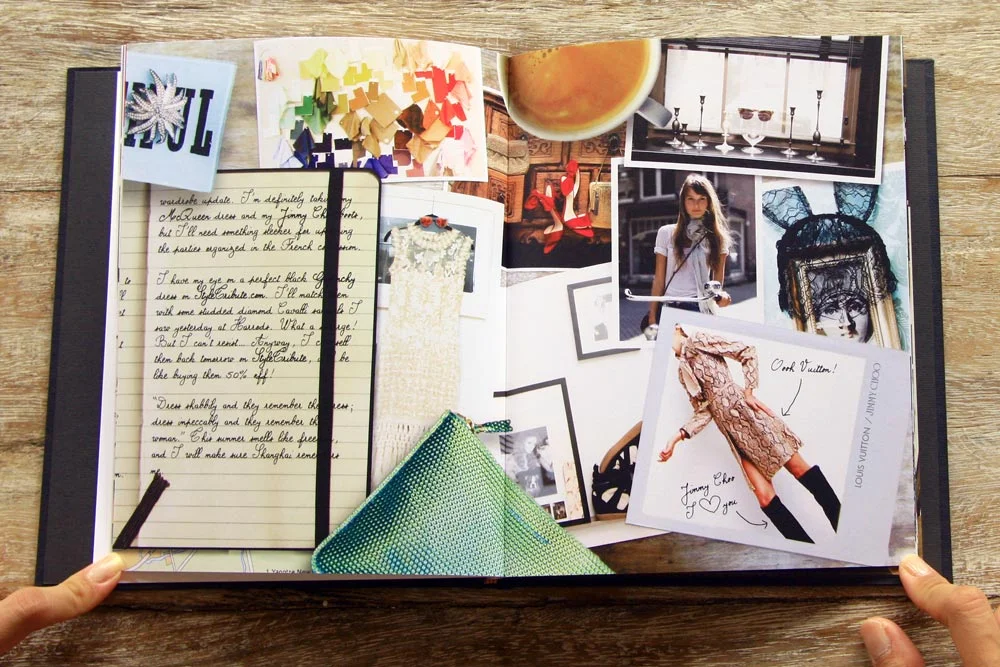 wardrobe update. I'm definitely taking my
McQueen dress and my Jimmy Choo boots,
but I'll need something sleeker for
the parties organized in the French
I have my eye on a perfect black Givenchy
dress on StyleTribute.com. I'll match them
with some studded diamond Cavalli sandals I
saw yesterday at Harrods. What a
But I can't resist... Anyway, I
them back tomorrow on StyleTribute, be
like buying them 50% off!
"Dress shabbily and they remember the dress;
dress impeccably and they remember the
woman." This summer smells like
and I will make sure Shanghai remembers
m
Oooh Vuitton!
LOUIS VUITTON / JIMMY CHOO
Jimmy Choo
I ♡ you